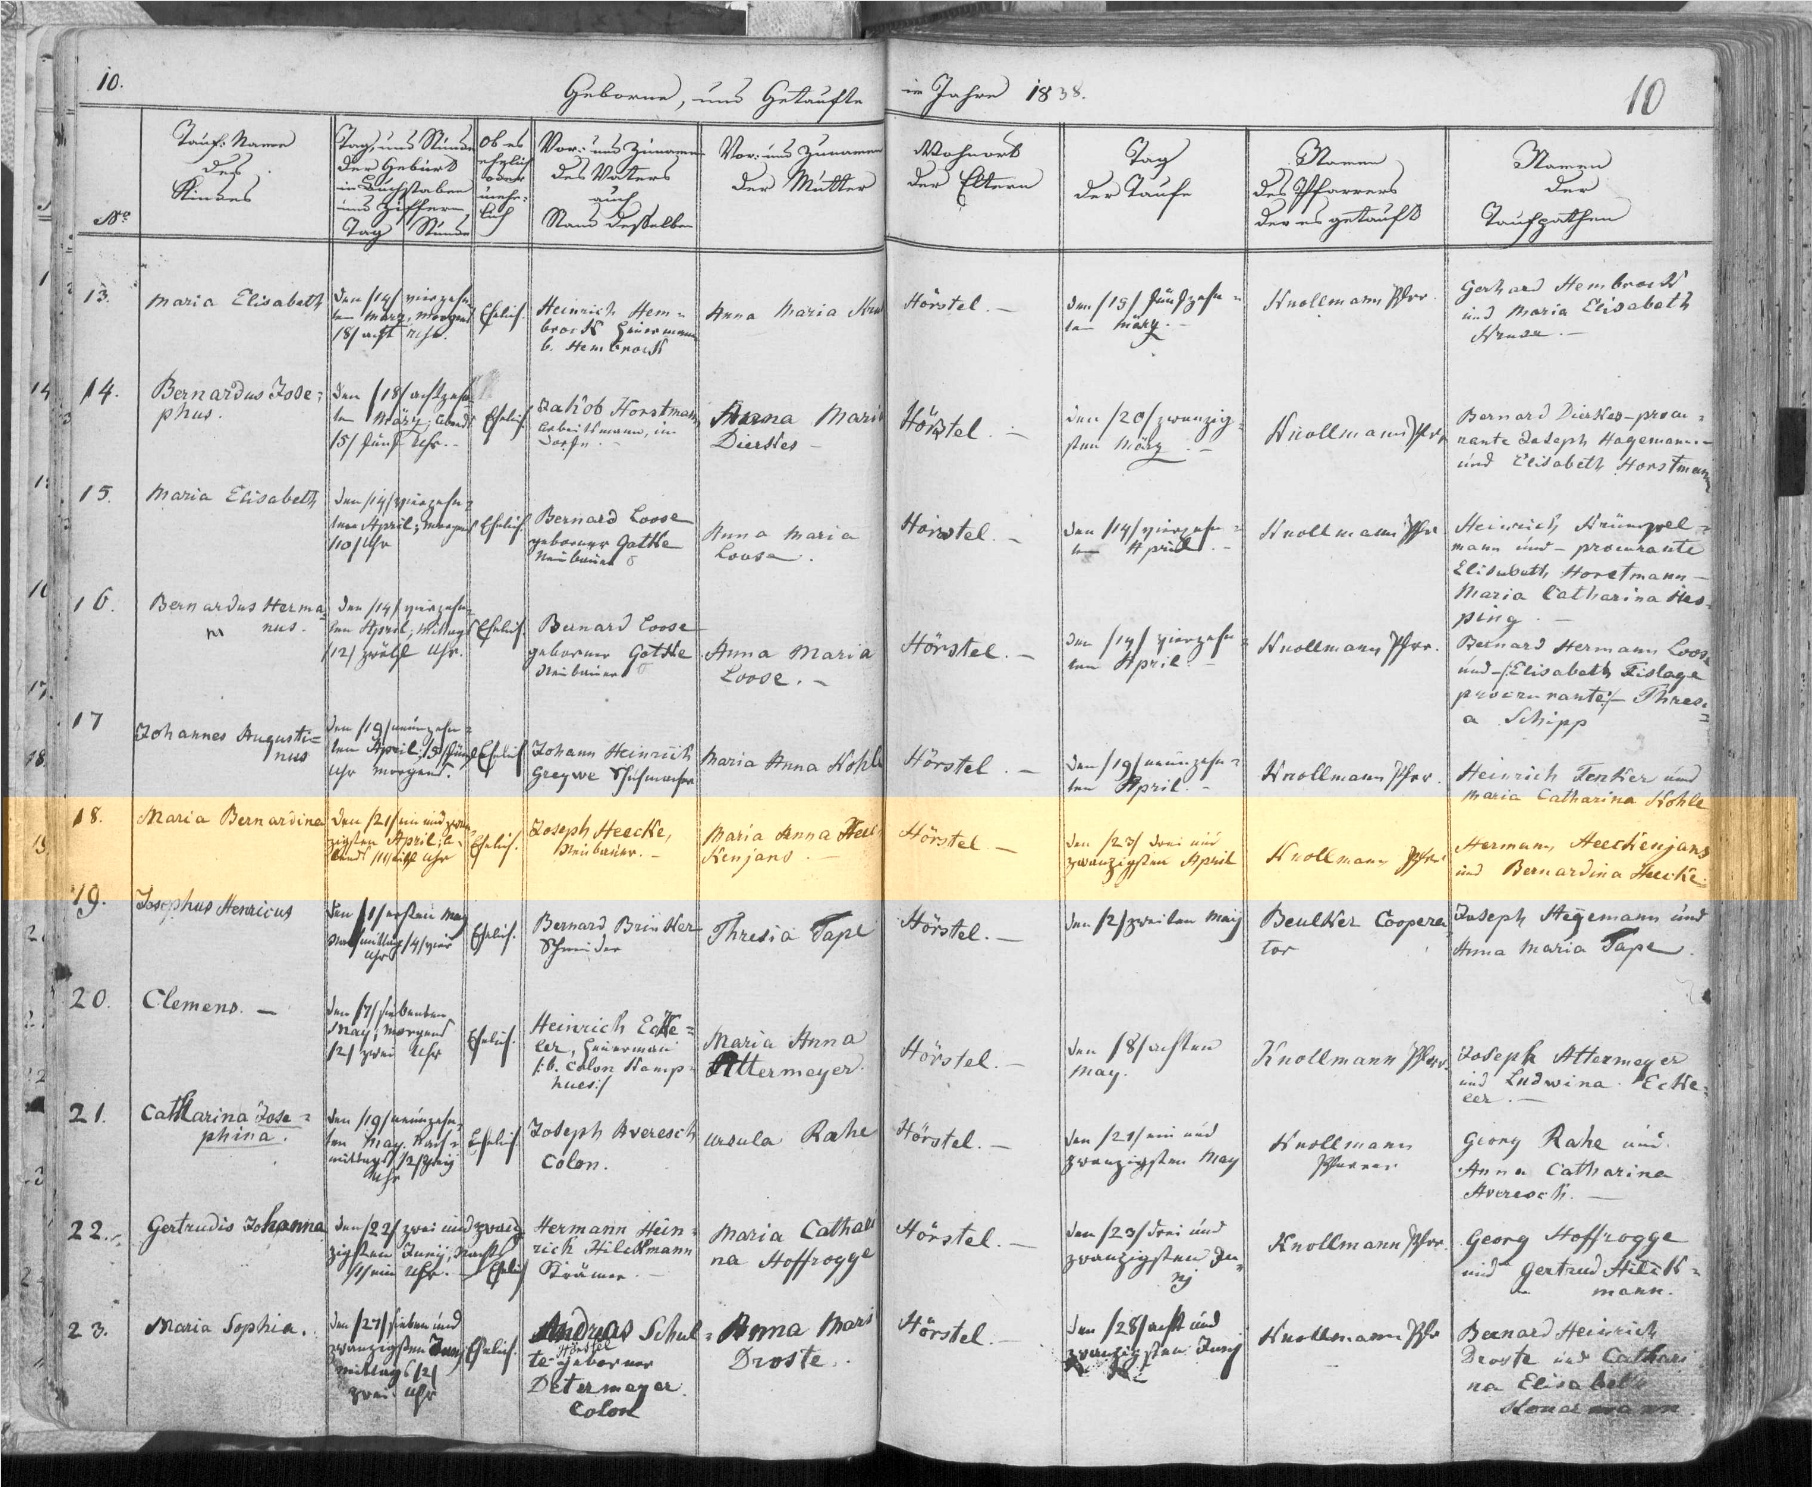 10.
Geborne, und Getaufte im Jahre 1838.
10
No
Tauf-Name
des
Kindes
Tag, und Stunde
der Geburt
in Buchstaben
und Ziffern
Tag Stunde
Ob es
ehelich
oder
unehe-
lich
Vor- und Zuname
des Vaters
auch
Stand desselben
Vor- und Zunamen
der Mutter
Wohnort
der Eltern
Tag
der Taufe
Namen
des Pfarrers
der es getauft
Namen
der
Taufpathen
13.
Maria Elisabeth
den /14/ vierzehn-
ten März, morgens
/8/ acht Uhr.
Ehelich.
Heinrich Hem-
brock Heuermann
b. Hembrock
Anna Maria
Hörstel. —
den /15/ fünfzehn-
ten März. —
Knollmann Pfrr.
Gerhard Hembrock
und Maria Elisabeth
Kruse. —
14.
Bernardus Jose-
phus.
den /18/ achtzehn-
ten März, Abends
/5/ fünf Uhr. —
Ehelich.
Jakob Horstmann
Arbeitsmann, im
Dorfe. —
Anna Maria
Dierkes —
Hörstel. —
den /20/ zwanzig-
sten März. —
Knollmann Pfrr
Bernard Dierkes — procu-
rante Joseph Hagemann —
und Elisabeth Horstmann
15.
Maria Elisabeth
den /14/ vierzehn-
ten April; morgens
/10/ Uhr
Ehelich.
Bernard Loose
geborner Gottke
Neubauer
Anna Maria
Loose.
Hörstel. —
den /14/ vierzehn-
ten April. —
Knollmann Pfrr
Heinrich Krümpel-
mann und — procurante
Elisabeth Horstmann —
Maria Catharina Hes-
ping. —
16.
Bernardus Herma-
nus.
den /14/ vierzehn-
ten April; Mittags
/12/ zwölf Uhr.
Ehelich.
Bernard Loose
geborner Gottke
Neubauer
Anna Maria
Loose. —
Hörstel. —
den /14/ vierzehn-
ten April. —
Knollmann Pfrr.
Bernard Hermann Loose
und — /:Elisabeth Fislage
procurante:/ — Thresi-
a Schipp
17
Johannes Augusti-
nus
den /19/ neunzehn-
ten April; /5/ fünf
Uhr morgens.
Ehelich.
Johann Heinrich
Greywe Schuhmacher
Maria Anna Kohle
Hörstel. —
den /19/ neunzehn-
ten April. —
Knollmann Pfrr.
Heinrich Fenker und
Maria Catharina Kohle
18.
Maria Bernardina
den /21/ ein und zwan-
zigsten April; A-
bends /11/ eilf Uhr
Ehelich.
Joseph Heecke,
Neubauer. —
Maria Anna Heec-
kenjans. —
Hörstel. —
den /23/ drei und
zwanzigsten April
Knollmann Pfrr
Hermann Heeckenjans
und Bernardina Heecke.
19.
Josephus Henricus
den /1/ ersten May
Nachmittags /4/ vier
Uhr
Ehelich.
Bernard Brinker
Schneider
Thresia Tape
Hörstel. —
den /2/ zweiten May
Beulker Coopera-
tor
Joseph Hegemann und
Anna Maria Tape.
20.
Clemens. —
den /7/ siebenten
May; morgens
/2/ zwei Uhr
Ehelich.
Heinrich Ecke-
ler, Heuermann
/:b. Colon Kamp-
hues:/
Maria Anna
Attermeyer.
Hörstel. —
den /8/ achten
May.
Knollmann Pfrr.
Joseph Attermeyer
und Ludwina Ecke-
ler. —
21.
Catharina Jose-
phina.
den /19/ neunzehn-
ten May Nach-
mittags /2/ zwei
Uhr
Ehelich
Joseph Averesch
Colon.
Ursula Rahe
Hörstel. —
den /21/ ein und
zwanzigsten May
Knollmann
Pfarrer
Georg Rahe und
Anna Catharina
Averesch. —
22.
Gertrudis Johanna
den /22/ zwei und zwan-
zigsten Juny, Nachts
/1/ ein Uhr. —
Ehelich
Hermann Hein-
rich Hilckmann
Krämer. —
Maria Cathari
na Hoffrogge
Hörstel. —
den /23/ drei und
zwanzigsten Ju-
ny
Knollmann Pfrr.
Georg Hoffrogge
und Gertrud Hilck-
mann.
23.
Maria Sophia.
den /27/ sieben und
zwanzigsten Juny
mittags /2/
zwei Uhr
Ehelich.
Andreas Schul-
te
geborner
Determeyer
Colon
Anna Mari
Droste.
Hörstel.
den /28/ acht und
zwanzigsten Juny
Knollmann Pfr
Bernard Heinrich
Droste und Cathari
na Elisabeth